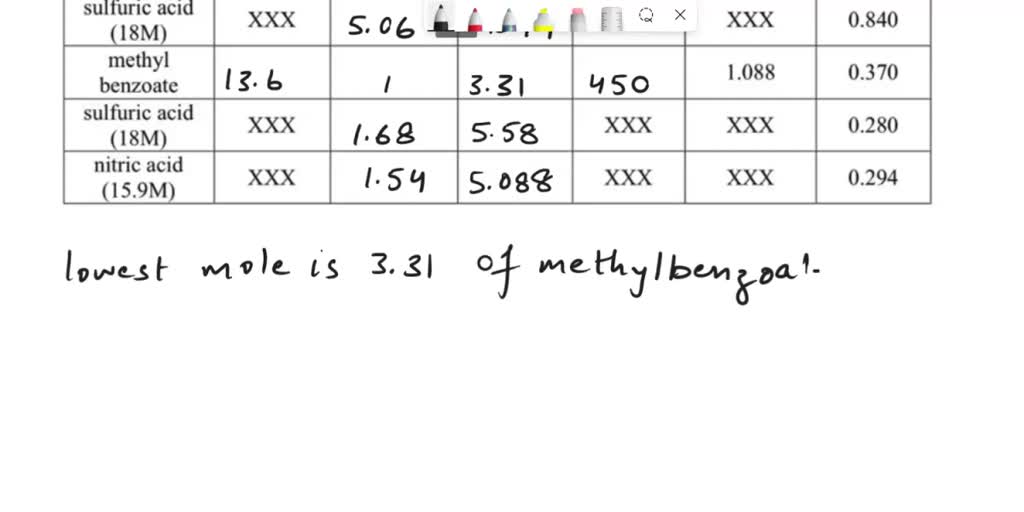 sulfuric acid (18M) XXX 5.06 XXX 0.840
methyl benzoate 13.6 1 3.31 450 1.088 0.370
sulfuric acid (18M) XXX 1.68 5.58 XXX XXX 0.280
nitric acid (15.9M) XXX 1.54 5.088 XXX XXX 0.294
lowest mole is 3.31 of methylbenzoat.